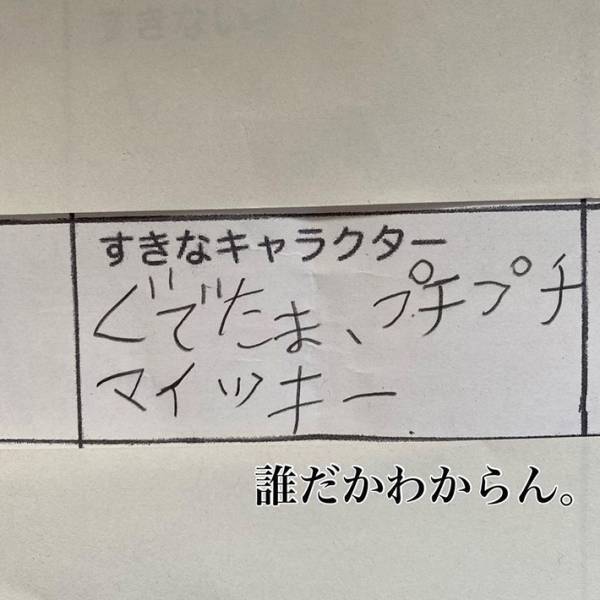 すきなキャラクター
ぐでたま、プチプチ
マイッキー
誰だかわからん。